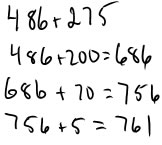 486+275
486+200=686
686+70=756
756+5=761